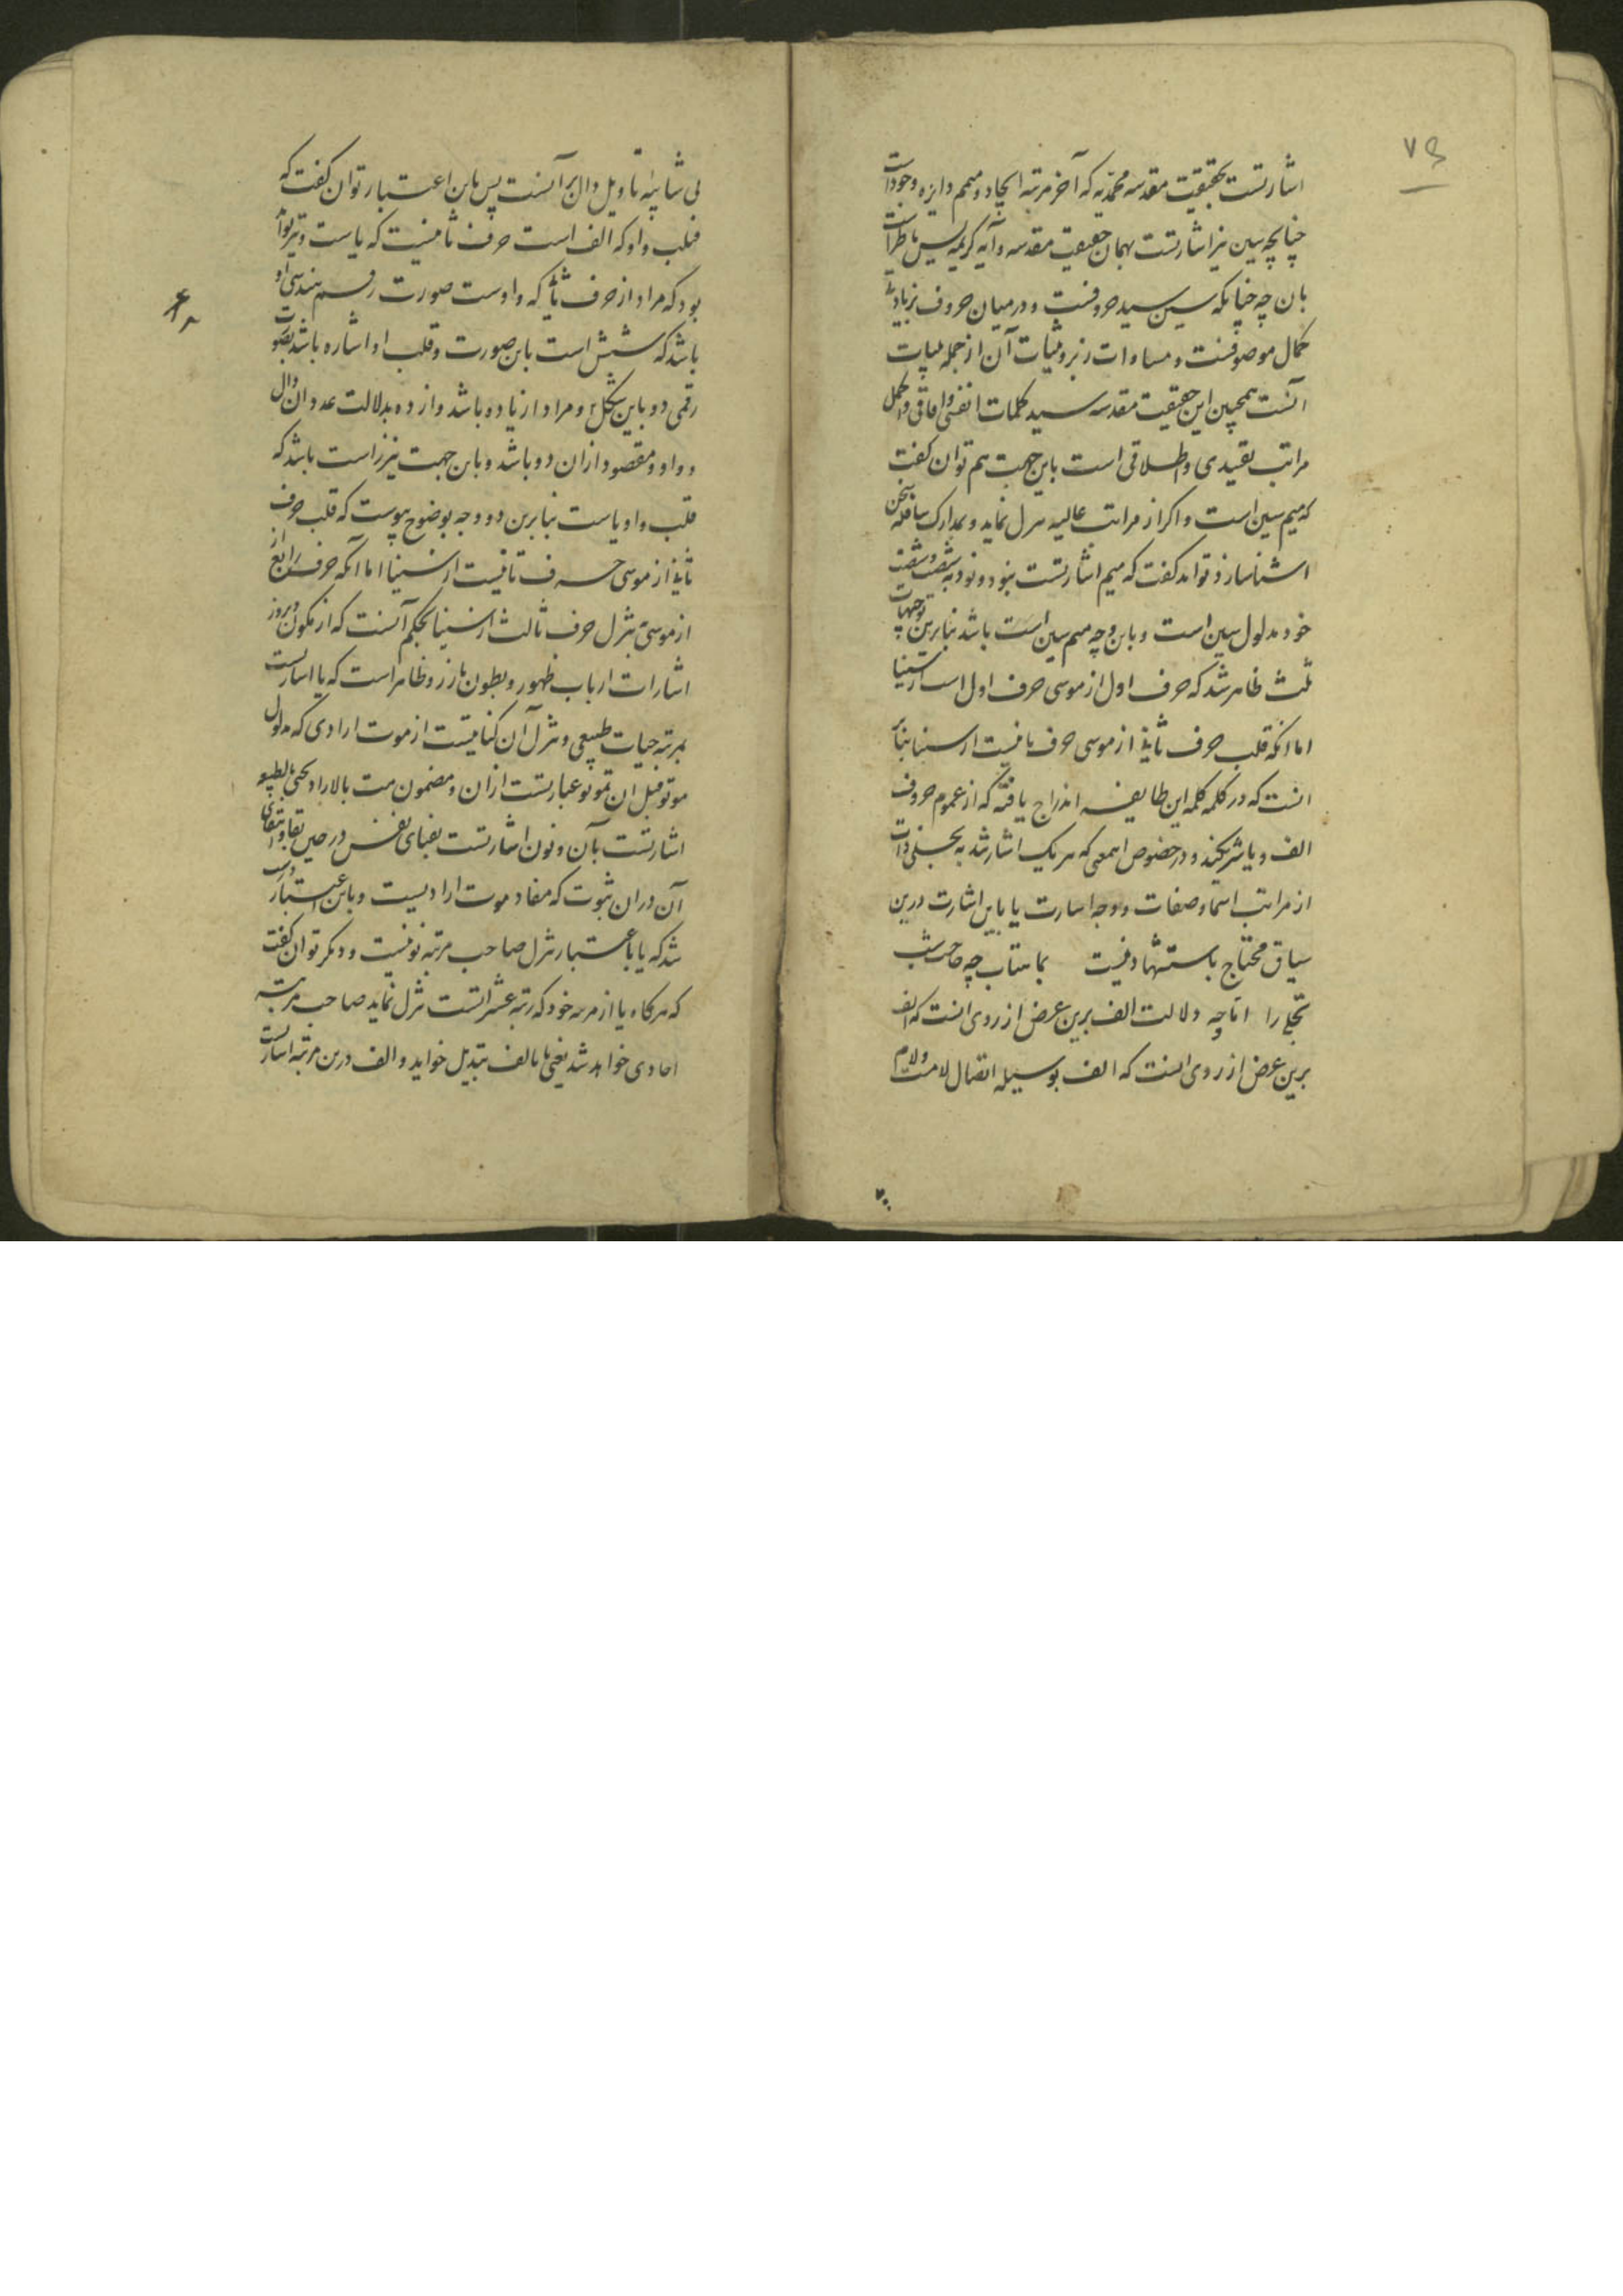 اشارتست بحقیقت مقدسه محمدیه که آخر مرتبه ایجاد و متمم دایره وجودات
چنانچه سین نیز اشارتست بهمان حقیقت مقدسه و آیه کریمه یس ناظر است
بان چه چنانکه سین سید حروفست و در میان حروف بزیادتی
کمال موصوفست و مساوات زبر و بینات آن از جمله بینات
آنست همچنین این حقیقت مقدسه سید کلمات انفسی و آفاقی و اکمل
مراتب تقیدی و اطلاقی است باین جهت هم توان گفت
که میم سین است و اکر از مراتب عالیه نزل نماید و بمدارک سافله سخن
اشناسازد تواند گفت که میم اشارتست بنود و نود به شصت و شصت
خود مدلول سین است و باین وجه میم سین است باشد بنابرین توجیهات
ثلث ظاهر شد که حرف اول از موسی حرف اول است از سینا
اما آنکه قلب حرف ثانی از موسی حرف ثانیست از سینا بنابر
انست که در کلمه کلمه این طایفه اندراج یافته که از عموم حروف
الف و یا شریکند و در خصوص اینمعنی که هر یک اشار شد به تجلی ذات
از مراتب اسما و صفات و وجه اشارت یا باین اشارت درین
سیاق محتاج باستشهاد نیست بماهتاب چه حاجت شب
تجلی را اما وجه دلالت الف برین عرض از روی انست که الف
برین عرض از روی انست که الف بوسیله اتصال لامست و لام
۷۹
بی شایبه تاویل دال بر آنست پس باین اعتبار توان کفت که
قلب واو که الف است حرف ثانیست که یاست و نیز تواند
بود که مراد از حرف ثانی که واوست صورت رقم هندسی او
باشد که شش است باین صورت و قلب او اشاره باشد بصورت
رقمی دو باین شکل ۲ و مراد از یا ده باشد و از ده بدلالت عدد آن دال
و واو و مقصود ازان دو باشد و باین جهت نیز راست باشد که
قلب واو یاست بنابرین دو وجه بوضوح پیوست که قلب حرف
ثانی از موسی حرف ثانیست از سینا اما آنکه حرف رابع از
از موسی بتنزل حرف ثالث از سینا بحکم آنست که از مکمون و بروز
اشارات ارباب ظهور و بطون بارز و ظاهر است که یا اشارتست
بمرتبه حیات طبیعی و تنزل آن کنایتیست از موت ارادی که مدلول
موتو قبل ان تموتو عبارتست ازان و مضمون مت بالاراده تحیی بالطبیعه
اشارتست بآن و نون اشارتست بفنای نفس در حین بقا و انتفای
آن دران ثبوت که مفاد موت ارادیست و باین اعتبار
شد که یا باعتبار تنزل صاحب مرتبه نونیست و دیکر توان کفت
که هرکاه یا از مرتبه خود که رتبه عشراتست تنزل نماید صاحب مرتبه
احادی خواهد شد یعنی یا بالف تبدیل خواهد و الف درین مرتبه اشارتست